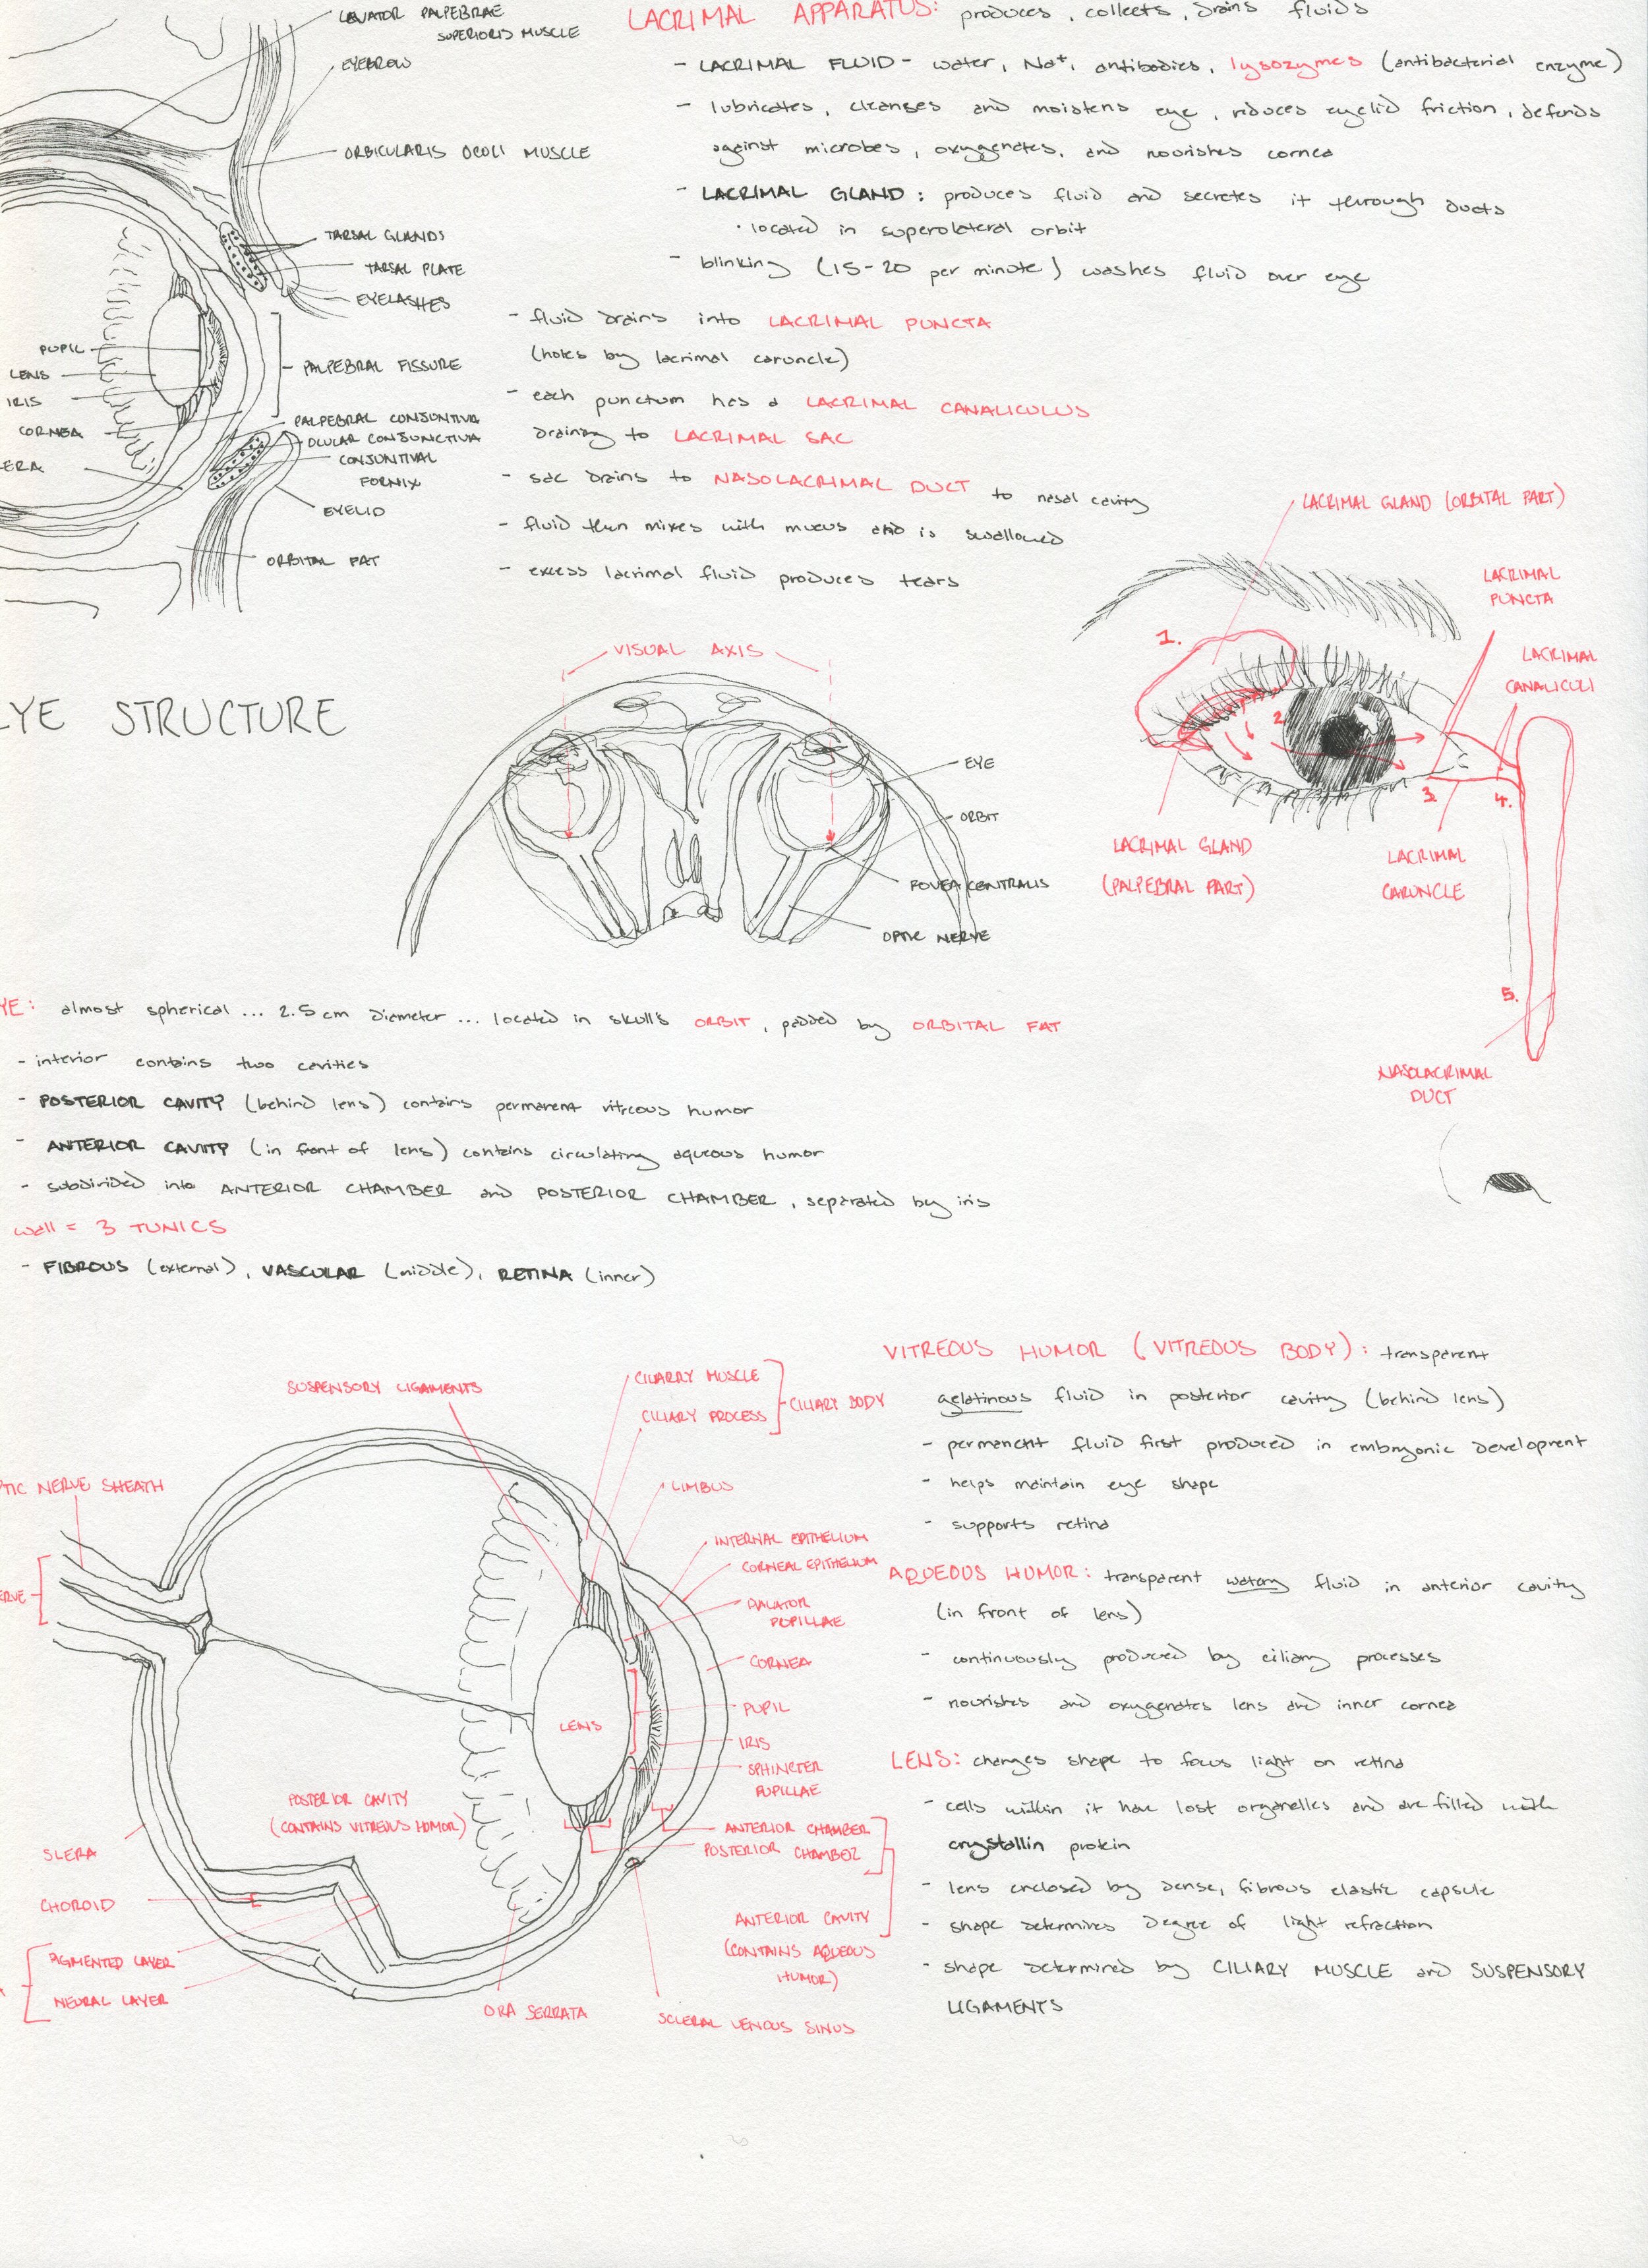 LEVATOR PALPEBRAE
SUPERIORIS MUSCLE
EYEBROW
ORBICULARIS OCULI MUSCLE
TARSAL GLANDS
TARSAL PLATE
EYELASHES
PUPIL
LENS
IRIS
CORNEA
ERA
PALPEBRAL FISSURE
PALPEBRAL CONJUNTIVA
OCULAR CONJUNCTIVA
CONJUNTIVAL
FORNIX
EYELID
ORBITAL FAT
LACRIMAL APPARATUS: produces, collects, drains fluids
- LACRIMAL FLUID - water, Na+, antibodies, lysozymes (antibacterial enzyme)
- lubricates, cleanses and moistens eye, reduces eyelid friction, defends
against microbes, oxygenates, and nourishes cornea
- LACRIMAL GLAND: produces fluid and secretes it through ducts
• located in superolateral orbit
- blinking (15-20 per minute) washes fluid over eye
- fluid drains into LACRIMAL PUNCTA
(holes by lacrimal caruncle)
- each punctum has a LACRIMAL CANALICULUS
draining to LACRIMAL SAC
- sac drains to NASOLACRIMAL DUCT to nasal cavity
- fluid then mixes with mucus and is swallowed
- excess lacrimal fluid produces tears
LACRIMAL GLAND (ORBITAL PART)
LACRIMAL
PUNCTA
LACRIMAL
CANALICULI
1.
2.
3.
4.
5.
LACRIMAL GLAND
(PALPEBRAL PART)
LACRIMAL
CARUNCLE
NASOLACRIMAL
DUCT
YE STRUCTURE
VISUAL AXIS
EYE
ORBIT
FOVEA CENTRALIS
OPTIC NERVE
YE: almost spherical ... 2.5 cm diameter ... located in skull's ORBIT, padded by ORBITAL FAT
- interior contains two cavities
- POSTERIOR CAVITY (behind lens) contains permanent vitreous humor
- ANTERIOR CAVITY (in front of lens) contains circulating aqueous humor
- subdivided into ANTERIOR CHAMBER and POSTERIOR CHAMBER, separated by iris
wall = 3 TUNICS
- FIBROUS (external), VASCULAR (middle), RETINA (inner)
SUSPENSORY LIGAMENTS
CILIARRY MUSCLE
CILIARY PROCESS
CILIARY BODY
PTIC NERVE SHEATH
ERVE
LIMBUS
INTERNAL EPITHELIUM
CORNEAL EPITHELIUM
DALATOR
PUPILLAE
CORNEA
PUPIL
LENS
IRIS
SPHINCTER
PUPILLAE
ANTERIOR CHAMBER
POSTERIOR CHAMBER
POSTERIOR CAVITY
(CONTAINS VITREUS HUMOR)
SLERA
CHOROID
PIGMENTED LAYER
NEURAL LAYER
ANTERIOR CAVITY
(CONTAINS AQUEOUS
HUMOR)
ORA SERRATA
SCLERAL VENOUS SINUS
VITREOUS HUMOR (VITREOUS BODY): transparent
gelatinous fluid in posterior cavity (behind lens)
- permanent fluid first produced in embryonic development
- helps maintain eye shape
- supports retina
AQUEOUS HUMOR: transparent watery fluid in anterior cavity
(in front of lens)
- continuously produced by ciliary processes
- nourishes and oxygenates lens and inner cornea
LENS: changes shape to focus light on retina
- cells within it have lost organelles and are filled with
crystallin protein
- lens enclosed by dense, fibrous elastic capsule
- shape determines degree of light refraction
- shape determined by CILIARY MUSCLE and SUSPENSORY
LIGAMENTS